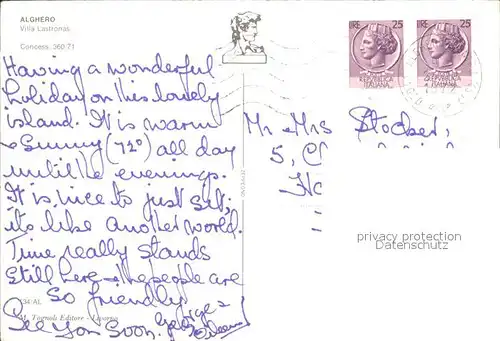 ALGHERO
Villa Lastronas
Concess. 360-71
Having a wonderful
holiday on this lovely
island. It is warm
+ Sunny (72°) all day
until the evenings.
It is nice to just sit;
its like another world.
Time really stands
still here + the people are
so friendly
See You Soon. George &
Eileen
34 AL
M. Tognoli Editore - Livorno
LIRE 25
REPUBBLICA
ITALIANA
LIRE 25
REPUBBLICA
ITALIANA
Mr + Mrs Stocker,
5, C
Ho
privacy protection
Datenschutz